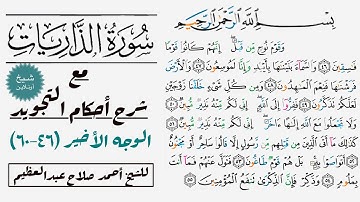 بِسْمِ اللَّهِ الرَّحْمَٰنِ الرَّحِيمِ
وَقَوْمَ نُوحٍ مِّن قَبْلُ إِنَّهُمْ كَانُوا۟ قَوْمًا
فَٰسِقِينَ ٤٦ وَالسَّمَآءَ بَنَيْنَٰهَا بِأَيْي۟دٍ وَإِنَّا لَمُوسِعُونَ ٤٧ وَالْأَرْضَ
فَرَشْنَٰهَا فَنِعْمَ الْمَٰهِدُونَ ٤٨ وَمِن كُلِّ شَىْءٍ خَلَقْنَا زَوْجَيْنِ
لَعَلَّكُمْ تَذَكَّرُونَ ٤٩ فَفِرُّوٓا۟ إِلَى اللَّهِ إِنِّى لَكُم مِّنْهُ نَذِيرٌ مُّبِينٌ ٥٠
وَلَا تَجْعَلُوا۟ مَعَ اللَّهِ إِلَٰهًا ءَاخَرَ إِنِّى لَكُم مِّنْهُ نَذِيرٌ مُّبِينٌ ٥١
كَذَٰلِكَ مَآ أَتَى الَّذِينَ مِن قَبْلِهِم مِّن رَّسُولٍ إِلَّا قَالُوا۟ سَاحِرٌ أَوْ مَجْنُونٌ ٥٢
أَتَوَاصَوْا۟ بِهِۦ بَلْ هُمْ قَوْمٌ طَاغُونَ ٥٣ فَتَوَلَّ عَنْهُمْ فَمَآ أَنتَ
بِمَلُومٍ ٥٤ وَذَكِّرْ فَإِنَّ الذِّكْرَىٰ تَنفَعُ الْمُؤْمِنِينَ ٥٥
سُورَةُ الذَّارِيَاتِ
مع
شرح أحكام التجويد
الوجه الأخير (٤٦-٦٠)
للشيخ أحمد صلاح عبدالعظيم
شيخ
أونلاين